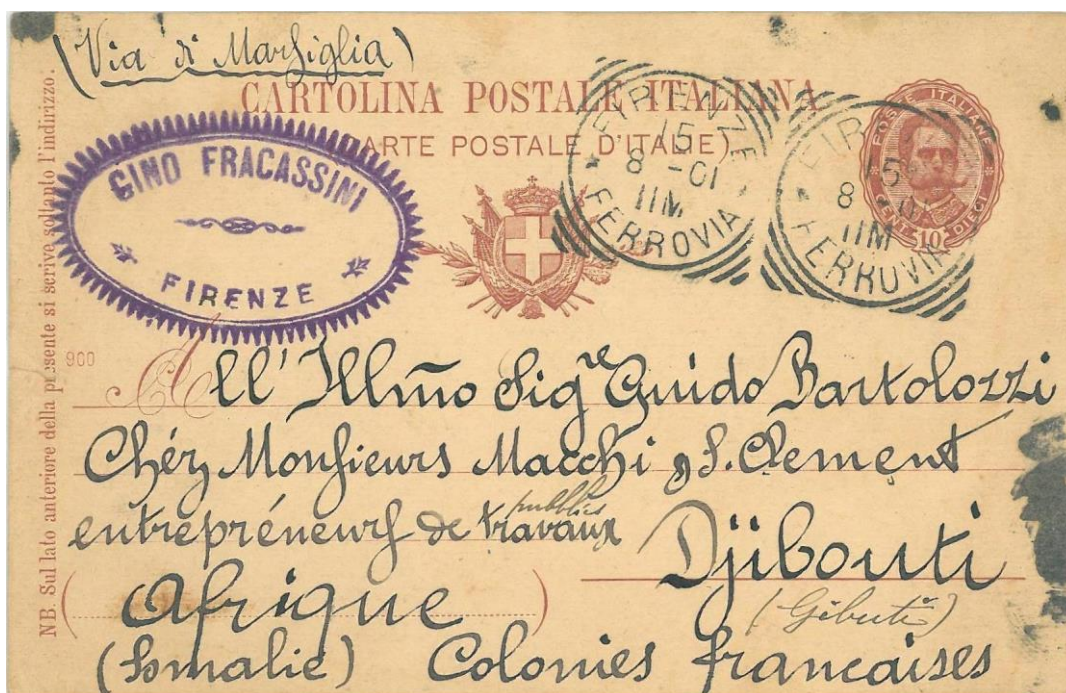 (Via di Marsiglia)
CARTOLINA POSTALE ITALIANA
(CARTE POSTALE D'ITALIE)
GINO FRACASSINI
FIRENZE
FIRENZE
15
8 - 01
11M
FERROVIA
FIR
15
8
11M
FERROVIA
POSTE ITALIANE
CENT. 10 DIECI
NB. Sul lato anteriore della presente si scrive soltanto l'indirizzo.
900
All' Illm̃o Sigre Guido Bartolozzi
Chéz Monsieurs Macchi & S. Clement
entrepréneurs de travaux pubblics
Djibouti
(Gibuti)
(Afrique)
(Somalie) Colonies francaises